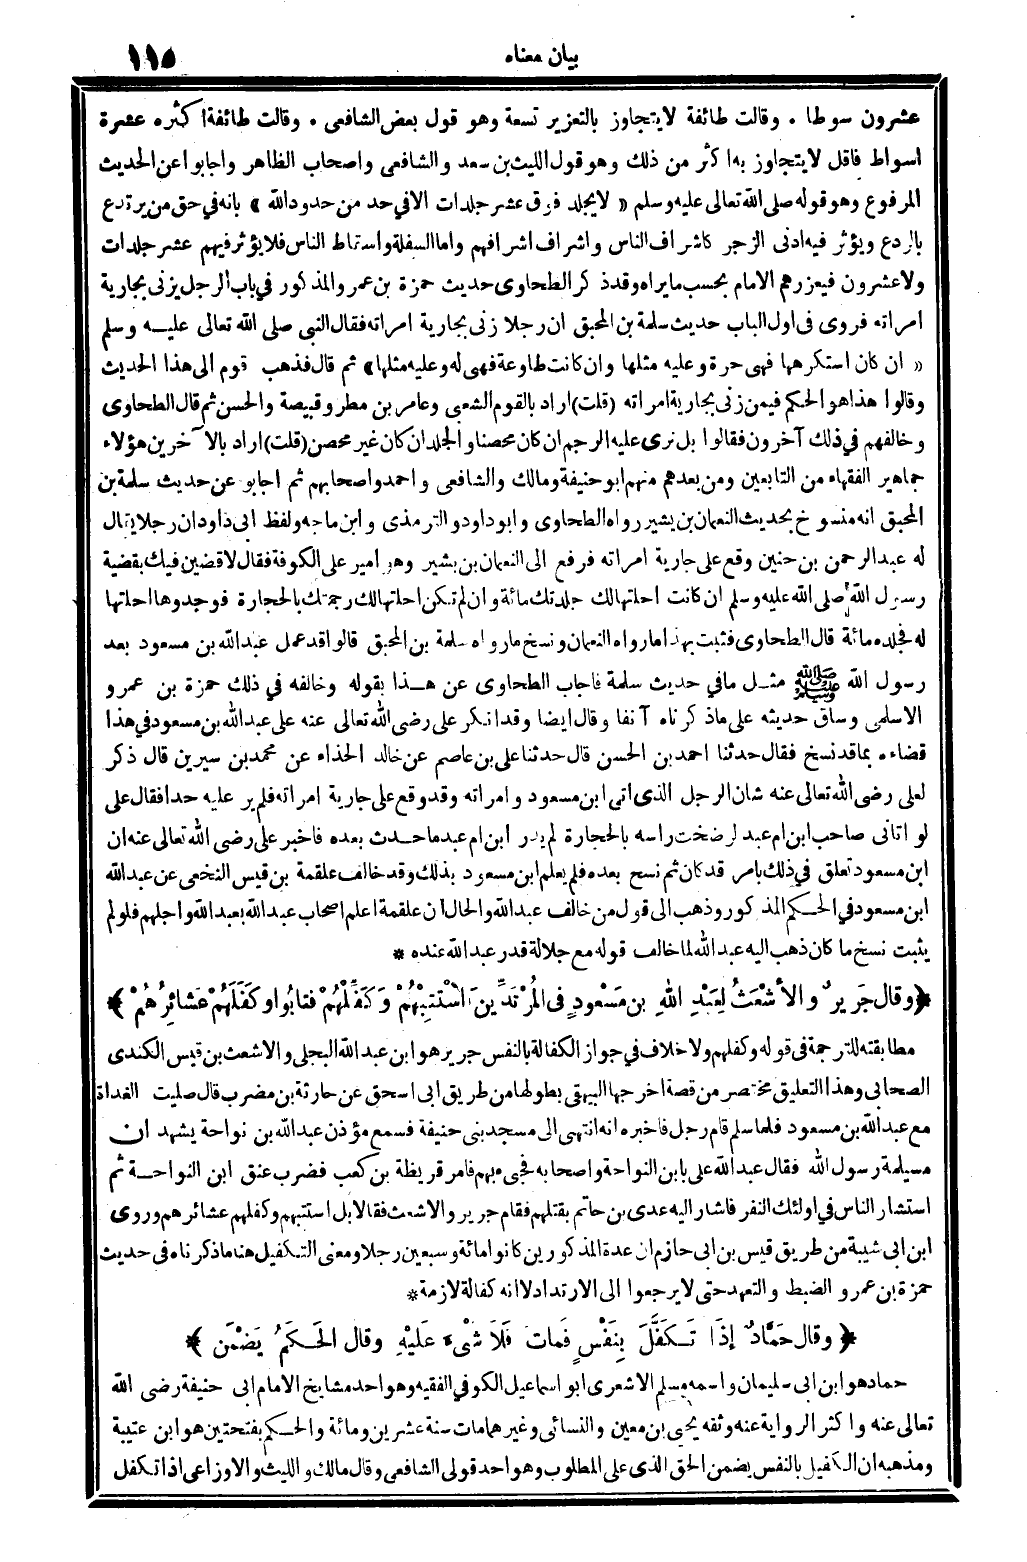 بيان معناه ١١٥
عشرون سوطا . وقالت طائفة لايتجاوز بالتعزير تسعة وهو قول بعض الشافعى . وقالت طائفة اكثره عشرة
اسواط فاقل لايتجاوز به اكثر من ذلك وهو قول الليث بن سعد والشافعى واصحاب الظاهر واجابوا عن الحديث
المرفوع وهو قوله صلى الله تعالى عليه وسلم « لايجلد فوق عشر جلدات الا فى حد من حدود الله » بانه فى حق من يرتدع
بالردع ويؤثر فيه ادنى الزجر كاشراف الناس واشراف اشرافهم واما السفلة واسقاط الناس فلا يؤثر فيهم عشر جلدات
ولا عشرون فيعزرهم الامام بحسب مايراه وقد ذكر الطحاوى حديث حمزة بن عمرو المذكور فى باب الرجل يزنى بجارية
امرأته فروى فى اول الباب حديث سلمة بن المحبق ان رجلا زنى بجارية امرأته فقال النبى صلى الله تعالى عليه وسلم
« ان كان استكرهها فهى حرة وعليه مثلها وان كانت طاوعة فهى له وعليه مثلها » ثم قال فذهب قوم الى هذا الحديث
وقالوا هذا هو الحكم فيمن زنى بجارية امرأته (قلت) اراد بالقوم الشعبى وعامر بن مطر وقبيصة والحسن ثم قال الطحاوى
وخالفهم فى ذلك آخرون فقالوا بل نرى عليه الرجم ان كان محصنا والجلد ان كان غير محصن (قلت) اراد بالآخرين هؤلاء
جماهير الفقهاء من التابعين ومن بعدهم منهم ابو حنيفة ومالك والشافعى واحمد واصحابهم ثم اجابو عن حديث سلمة بن
المحبق انه منسوخ بحديث النعمان بن بشير رواه الطحاوى وابو داود والترمذى وابن ماجه ولفظ ابى داود ان رجلا يقال
له عبد الرحمن بن حنين وقع على جارية امرأته فرفع الى النعمان بن بشير وهو امير على الكوفة فقال لاقضين فيك بقضية
رسول الله صلى الله عليه وسلم ان كانت احلتها لك جلدتك مائة وان لم تكن احلتها لك رجمتك بالحجارة فوجدوها احلتها
له فجلده مائة قال الطحاوى فثبت بهذا مارواه النعمان ونسخ مارواه سلمة بن المحبق قالوا قد عمل عبد الله بن مسعود بعد
رسول الله ﷺ مثل مافى حديث سلمة فاجاب الطحاوى عن هذا بقوله وخالفه فى ذلك حمزة بن عمرو
الاسلمى وساق حديثه على ماذكرناه آنفا وقال ايضا وقد انكر على رضى الله تعالى عنه على عبد الله بن مسعود فى هذا
قضاءه بما قد نسخ فقال حدثنا احمد بن الحسن قال حدثنا على بن عاصم عن خالد الحذاء عن محمد بن سيرين قال ذكر
لعلى رضى الله تعالى عنه شان الرجل الذى اتى ابن مسعود وامرأته وقد وقع على جارية امرأته فلم ير عليه حدا فقال على
لو اتانى صاحب ابن ام عبد لرضخت رأسه بالحجارة لم يدر ابن ام عبد ماحدث بعده فاخبر على رضى الله تعالى عنه ان
ابن مسعود تعلق فى ذلك بامر قد كان ثم نسخ بعده فلم يعلم ابن مسعود بذلك وقد خالف علقمة بن قيس النخعى عن عبد الله
ابن مسعود فى الحكم المذكور وذهب الى قول من خالف عبد الله والحال أن علقمة اعلم اصحاب عبد الله بعبد الله واجلهم فلو لم
يثبت نسخ ما كان ذهب اليه عبد الله لما خالف قوله مع جلالة قدر عبد الله عنده *
﴿ وقال جَرِيرٌ والأَشْعَثُ لِعَبْدِ اللهِ بنِ مَسْعُودٍ فى المُرْتَدِّينَ اسْتَتِبْهُمْ وَكَفِّلْهُمْ فَتابُوا وَكَفَلَهُمْ عَشائِرُهُمْ ﴾
مطابقته للترجمة فى قوله وكفلهم ولا خلاف فى جواز الكفالة بالنفس جرير هو ابن عبد الله البجلى والاشعث بن قيس الكندى
الصحابى وهذا التعليق مختصر من قصة اخرجها البيهقى بطولها من طريق ابى اسحق عن حارثة بن مضرب قال صليت الغداة
مع عبد الله بن مسعود فلما سلم قام رجل فاخبره انه انتهى الى مسجد بنى حنيفة فسمع مؤذن عبد الله بن نواحة يشهد ان
مسيلمة رسول الله فقال عبد الله على بابن النواحة واصحابه فجىء بهم فامر قريظة بن كعب فضرب عنق ابن النواحة ثم
استشار الناس فى اولئك النفر فاشار اليه عدى بن حاتم بقتلهم فقام جرير والاشعث فقالا بل استتبهم وكفلهم عشائرهم وروى
ابن ابى شيبة من طريق قيس بن ابى حازم ان عدة المذكورين كانوا مائة وسبعين رجلا ومعنى التكفيل هنا ماذكرناه فى حديث
حمزة بن عمرو الضبط والتعهد حتى لايرجعوا الى الارتداد لا انه كفالة لازمة *
﴿ وقال حَمَّادٌ إذَا تَكَفَّلَ بِنَفْسٍ فَماتَ فَلاَ شَىْءَ عَلَيْهِ وقال الحَكَمُ يَضْمَن ﴾
حماد هو ابن ابى سليمان واسمه مسلم الاشعرى ابو اسماعيل الكوفى الفقيه وهو احد مشايخ الامام ابى حنيفة رضى الله
تعالى عنه واكثر الرواية عنه وثقه يحيى بن معين والنسائى وغيرهما مات سنة عشرين ومائة والحكم بفتحتين هو ابن عتيبة
ومذهبه ان الكفيل بالنفس يضمن الحق الذى على المطلوب وهو احد قولى الشافعى وقال مالك والليث والاوزاعى اذا تكفل